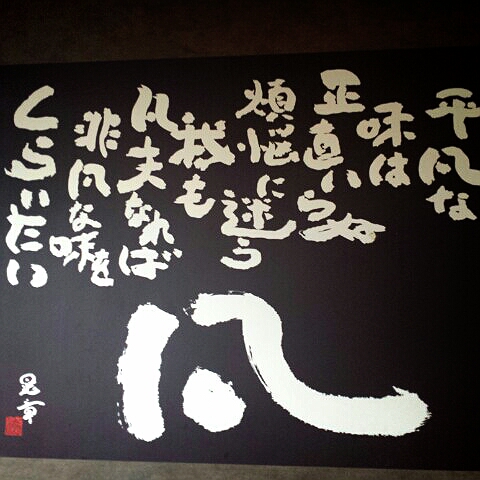 平凡な
味は
正直いらぬ
煩悩に迷う
我も
凡夫なれば
非凡な味を
くらいたい
凡
昌章